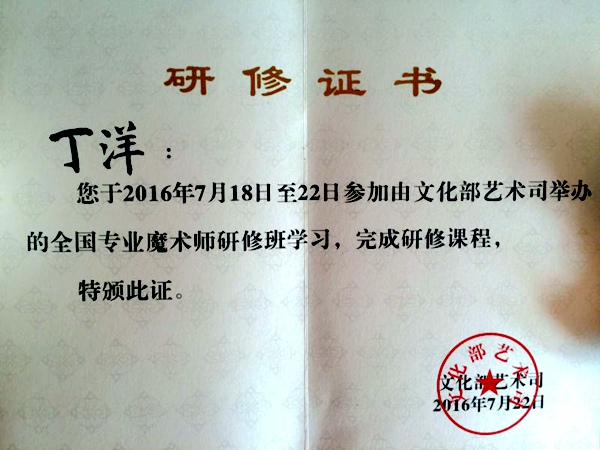 研修证书
丁洋：
您于2016年7月18日至22日参加由文化部艺术司举办
的全国专业魔术师研修班学习，完成研修课程，
特颁此证。
文化部艺术司
文化部艺术司
2016年7月22日